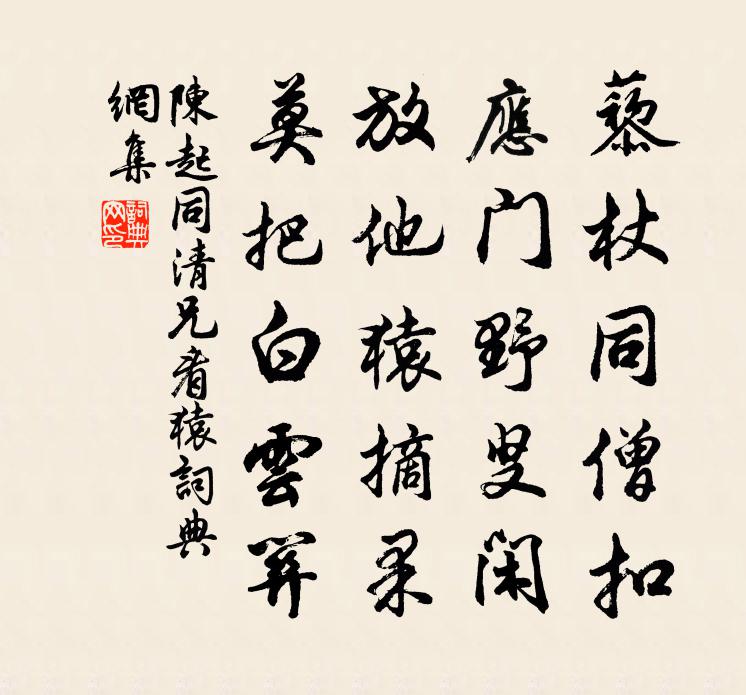 藜杖同僧扣
應门野叟閑
放他猿摘果
莫把白雲關
陳起同清兄看猿詞典
網集
詞典
网印